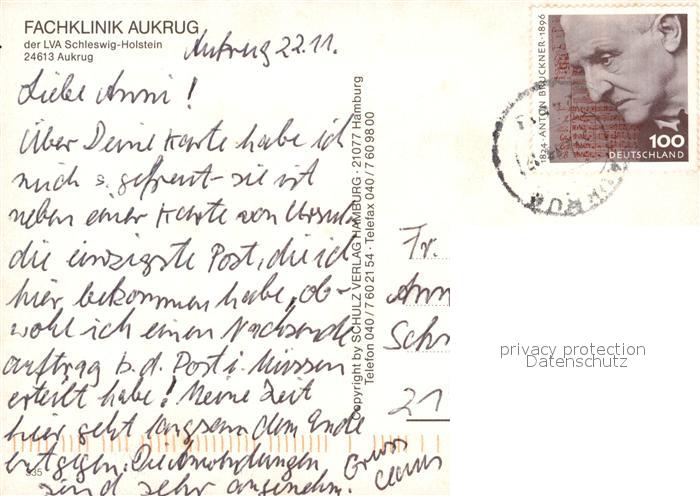 FACHKLINIK AUKRUG
der LVA Schleswig-Holstein
24613 Aukrug
Aukrug 22.11.
Liebe Anni!
Über Deine Karte habe ich
mich s. gefreut - sie ist
neben einer Karte von Ursula
die einzigste Post, die ich
hier bekommen habe, ob-
wohl ich einen Nachsende
auftrag b. d. Post i. Winsen
erteilt habe! Meine Zeit
hier geht langsam dem Ende
entgegen. Die Anwendungen
sind sehr angenehm.
Gruss
535
Copyright by SCHULZ VERLAG HAMBURG · 21077 Hamburg
Telefon 040 / 7 60 21 54 · Telefax 040 / 7 60 98 00
1824 · ANTON BRUCKNER · 1896
100
DEUTSCHLAND
Fr.
Ann
Sch
21
privacy protection
Datenschutz